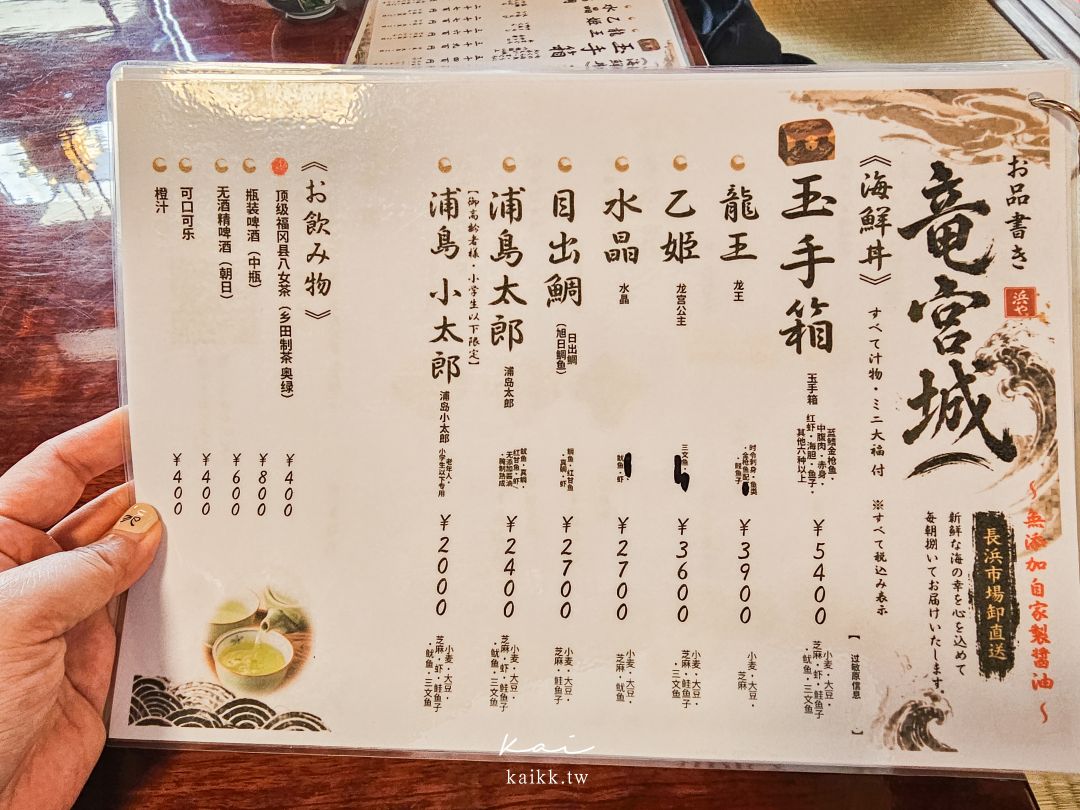 お品書き
竜宮城
浜や
〜無添加自家製醤油〜
長浜市場卸直送
新鮮な海の幸を心を込めて
毎朝捌いてお届けいたします。
《海鮮丼》
すべて汁物・ミニ大福 付
※すべて税込み表示
【过敏原信息】
玉手箱
玉手箱
蓝鳍金枪鱼・
中腹肉・赤身・
红虾・海胆・鱼子・
其他六种以上
¥5400
小麦・大豆・
芝麻・虾・鲑鱼子
・鱿鱼・三文鱼
龍王
龙王
时令刺身・鱼类
・金枪鱼配
鲑鱼子
¥3900
小麦・大豆・
芝麻
乙姫
龙宫公主
三文鱼・
¥3600
小麦・大豆・
芝麻・鲑鱼子
・鱿鱼・三文鱼
水晶
水晶
鱿鱼・虾
¥2700
小麦・大豆・
芝麻・鱿鱼
目出鯛
日出鲷
(旭日鲷鱼)
鲷鱼・红甘鱼
・真鲷・虾
¥2700
小麦・大豆・
芝麻・鲑鱼子
浦島太郎
浦岛太郎
鱿鱼・真鲷・
红甘鱼・虾/
无添加酱油
・腌制熟成
¥2400
小麦・大豆・
芝麻・虾・鲑鱼子
・鱿鱼・三文鱼
【御高齢者様・小学生以下限定】
浦島小太郎
浦岛小太郎
老年人・
小学生以下专用
¥2000
小麦・大豆・
芝麻・虾・鲑鱼子
・鱿鱼・三文鱼
《お飲み物》
顶级福冈县八女茶(乡田制茶 奥绿)
¥400
瓶装啤酒(中瓶)
¥800
无酒精啤酒(朝日)
¥600
可口可乐
¥400
橙汁
¥400
Kai
kaikk.tw